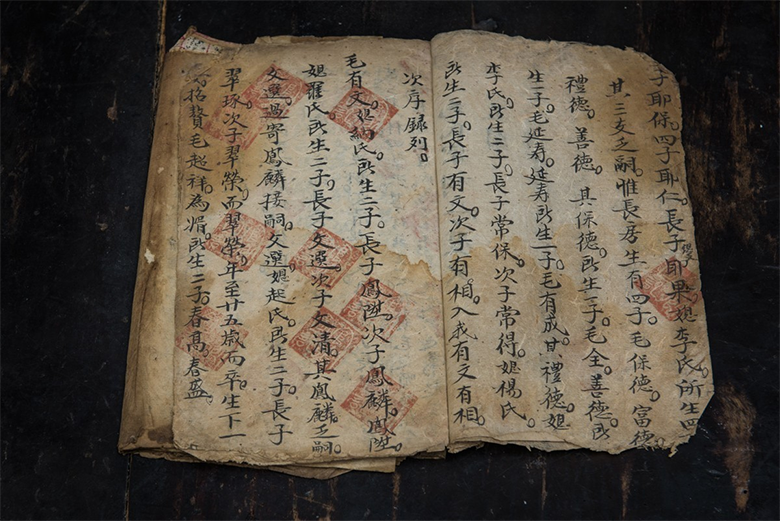 子耶保。四子耶仁。長子耶果。妣李氏。所生四
其三支之嗣。惟長房生有四子。毛保德。富德
禮德。善德。其保德。所生一子。毛全。善德。所
生一子。毛延寿。延寿所生一子。毛有成。其禮德。妣
李氏。所生二子。長子常保。次子常得。妣楊氏。
所生二子。長子有文。次子有相。入我有文有相。
次序録列。
毛有文。妣納氏。所生二子。長子鳳陞。次子鳳麟。鳳陞。
妣羅氏。所生二子。長子文選。次子文清。其鳳麟乏嗣。
文選過寄鳳麟接嗣。文選。妣赵氏。所生二子。長子
翠琢。次子翠榮。而翠榮年至廿五歲而卒。生下一
女招贅毛起祥。為婿。所生二子。春髙。春盛。